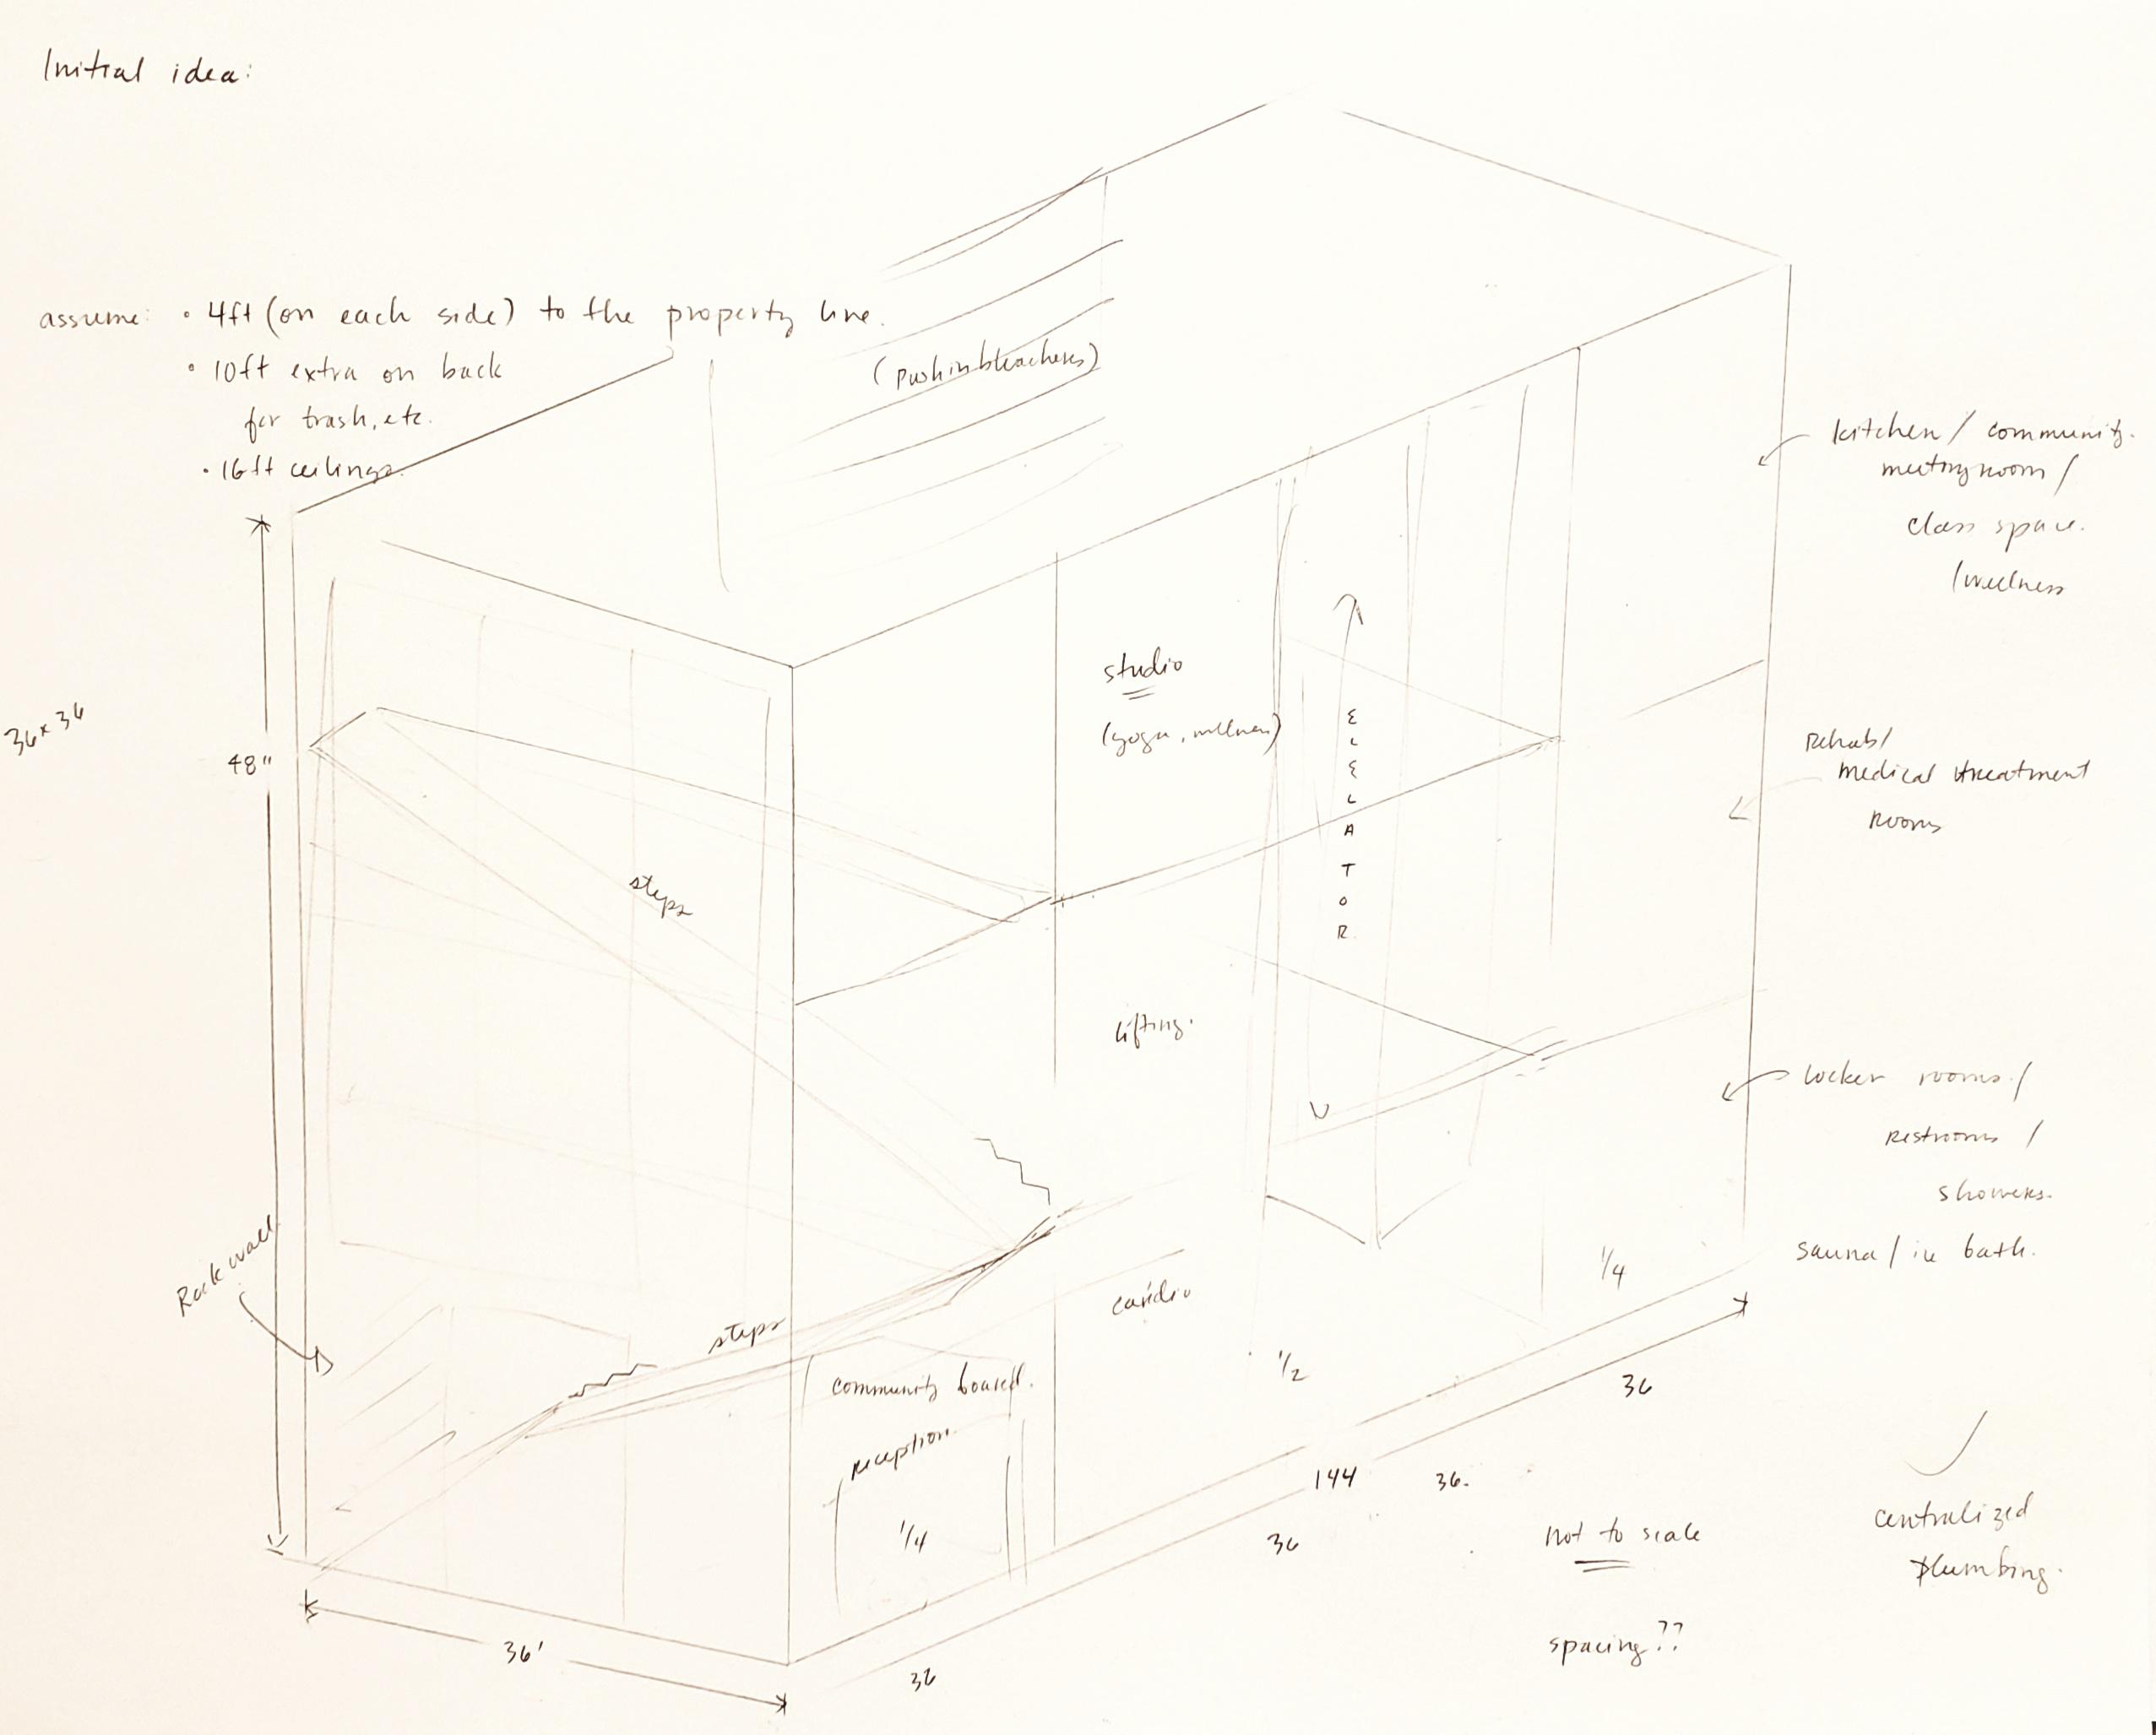 Initial idea:
assume: • 4ft (on each side) to the property line.
• 10ft extra on back
for trash, etc.
• 16ft ceilings.
(push in bleachers)
kitchen / community
meeting room /
class space.
/wellness
studio
(yoga, wellness)
ELEVATOR
36x36
48"
Rehab/
medical treatment
rooms
steps
lifting.
locker rooms /
restrooms /
showers.
sauna / ice bath.
Rock wall
steps
cardio
1/4
community board.
reception
1/2
1/4
36
144
36.
36
36
36'
not to scale
spacing??
centralized
plumbing.